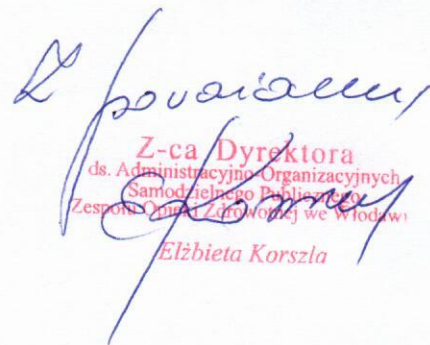 Z poważaniem
Z-ca Dyrektora
ds. Administracyjno-Organizacyjnych
Samodzielnego Publicznego
Zespołu Opieki Zdrowotnej we Włodawi
Elżbieta Korszla